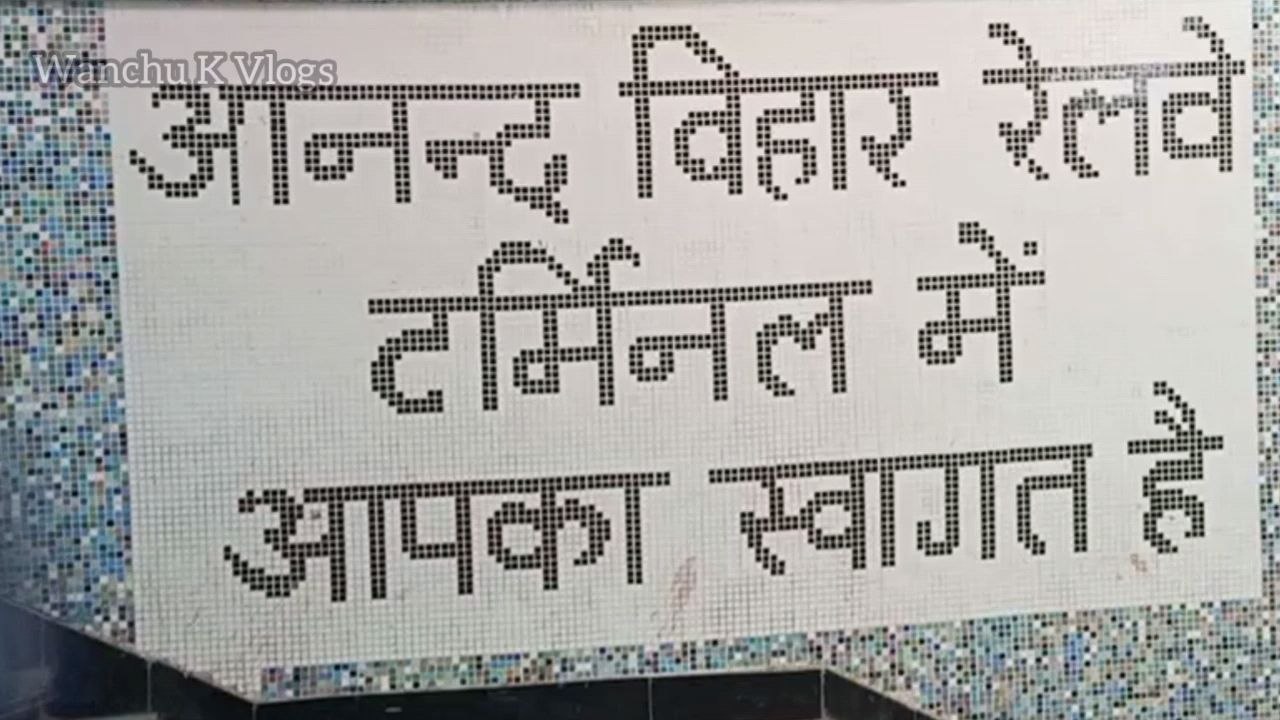 Wanchu K Vlogs
आनन्द विहार रेलवे
टर्मिनल में
आपका स्वागत है